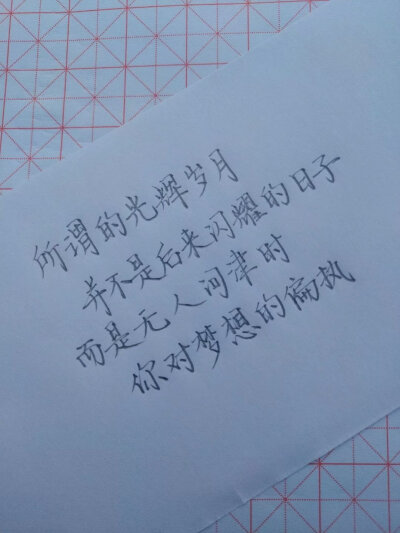 所谓的光辉岁月
并不是后来闪耀的日子
而是无人问津时
你对梦想的偏执